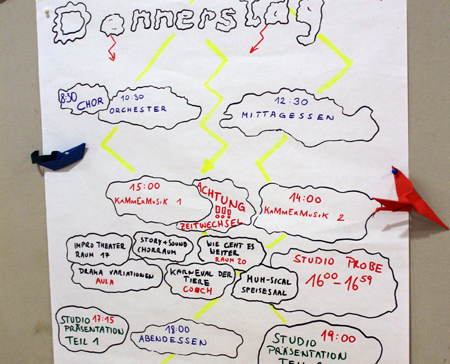 Donnerstag
8:30
CHOR
10:30
ORCHESTER
12:30
MITTAGESSEN
15:00
KAMMERMUSIK 1
ACHTUNG
!!!
ZEITWECHSEL
14:00
KAMMERMUSIK 2
IMPRO THEATER
RAUM 17
STORY + SOUND
CHORRAUM
WIE GEHT ES
WEITER
RAUM 20
STUDIO PROBE
16:00 - 16:59
DRAMA VARIATIONEN
AULA
KARNEVAL DER
TIERE
COACH
MUH-SICAL
SPEISESAAL
17:15
STUDIO
PRÄSENTATION
TEIL 1
18:00
ABENDESSEN
19:00
STUDIO
PRÄSENTATION